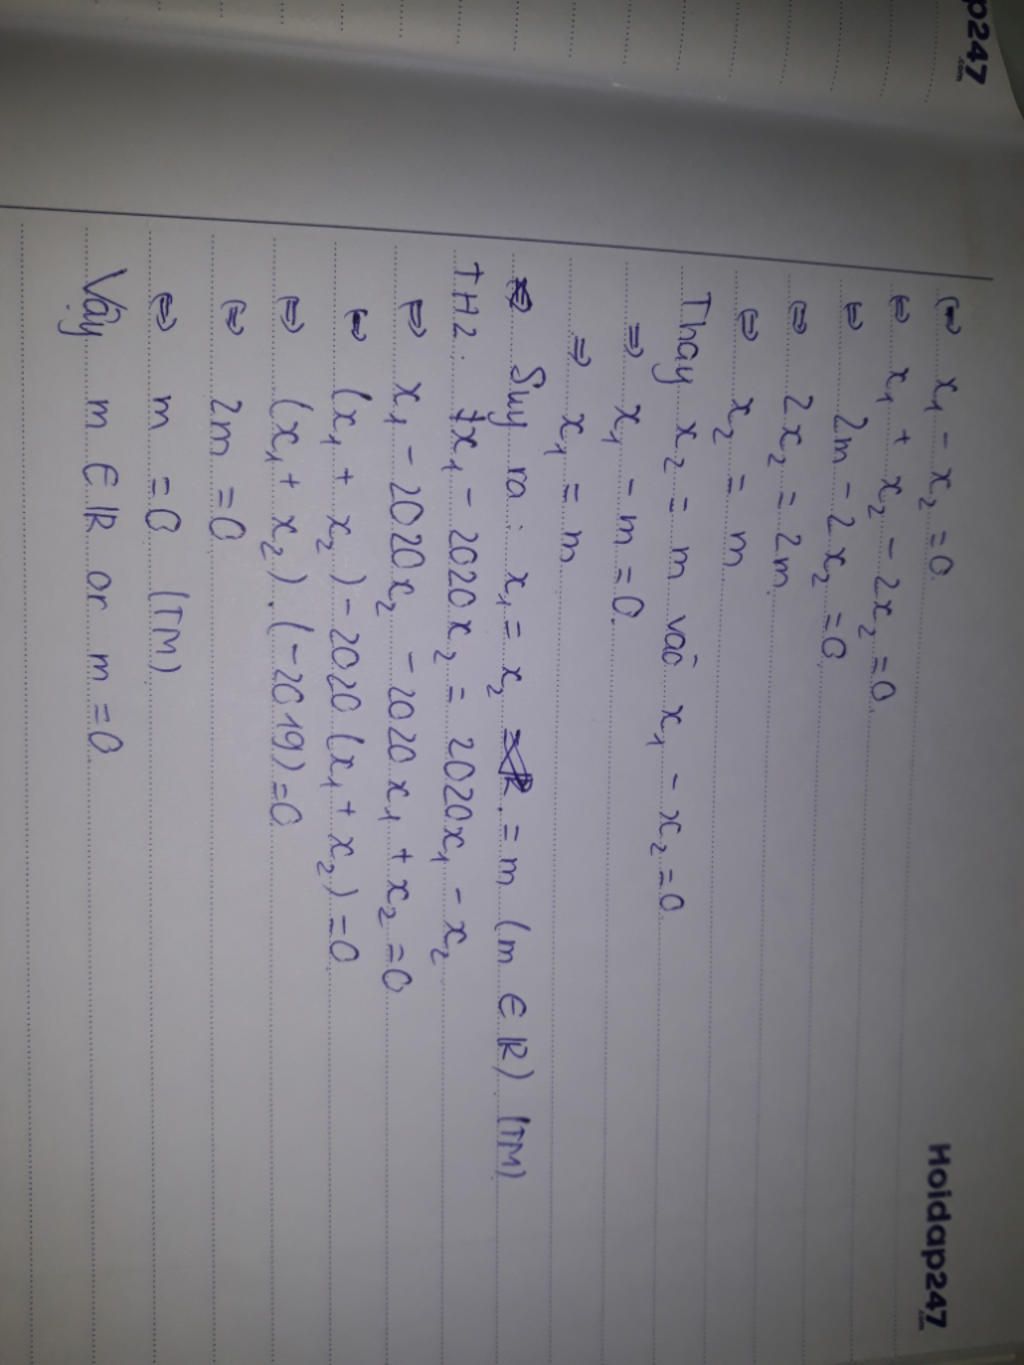 p247
.com
Hoidap247
.com
⇔ x₁ - x₂ = 0
⇔ x₁ + x₂ - 2x₂ = 0
⇔ 2m - 2x₂ = 0
⇔ 2x₂ = 2m
⇔ x₂ = m
Thay x₂ = m vào x₁ - x₂ = 0
⇒ x₁ - m = 0
⇒ x₁ = m
Suy ra: x₁ = x₂ = m (m ∈ ℝ) (TM)
TH2: x₁ - 2020x₂ = 2020x₁ - x₂
⇔ x₁ - 2020x₂ - 2020x₁ + x₂ = 0
⇔ (x₁ + x₂) - 2020(x₁ + x₂) = 0
⇔ (x₁ + x₂).(-2019) = 0
⇔ 2m = 0
⇔ m = 0 (TM)
Vậy m ∈ ℝ or m = 0